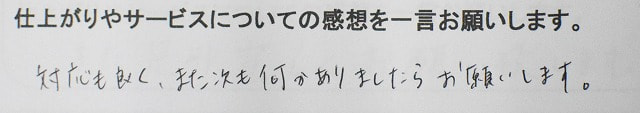 仕上がりやサービスについての感想を一言お願いします。
対応も良く、また次も何かありましたらお願いします。